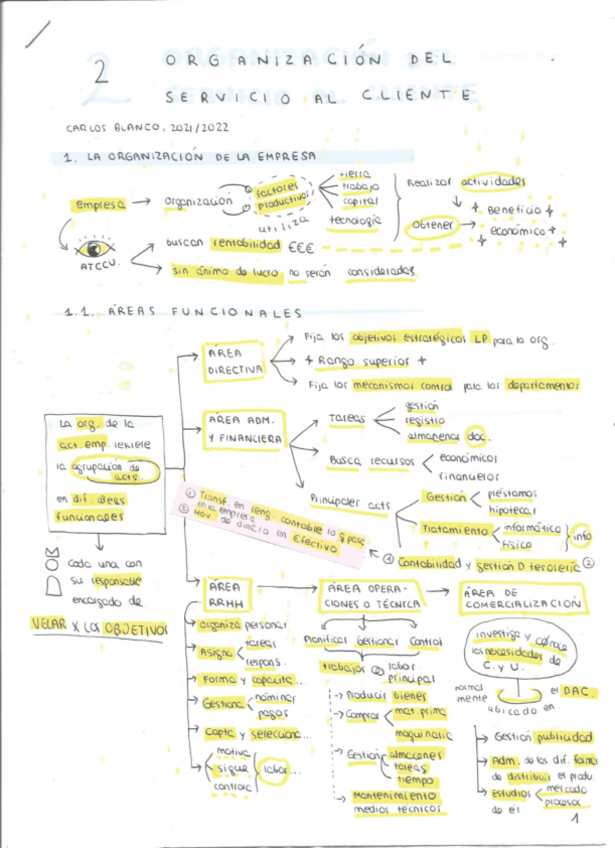 2
ORGANIZACIÓN DEL
SERVICIO AL CLIENTE
CARLOS BLANCO, 2021/2022
1. LA ORGANIZACIÓN DE LA EMPRESA
Empresa → organización
factores
productivos
utiliza
tierra
trabajo
capital
tecnología
Realizar actividades
obtener → + Beneficio +
+ económico +
ATCCU.
buscan rentabilidad €€€
sin ánimo de lucro no serán consideradas
1.1. ÁREAS FUNCIONALES
La org. de la
act. emp. requiere
la agrupación de
acts.
en dif. áreas
funcionales
Cada una con
su responsable
encargado de
VELAR X LOS OBJETIVOS
ÁREA
DIRECTIVA
Fija los objetivos estratégicos LP para la org.
+ Rango superior +
Fija los mecanismos control para los departamentos
ÁREA ADM.
Y FINANCIERA
Tareas
gestión
registro
almacenar doc.
Busca recursos
económicos
financieros
Principales acts
Gestión
préstamos
hipotecas
Tratamiento
informático
físico
info
① Contabilidad y gestión D tesorería ②
① Transf. en leng. contable lo q pase
en la empresa
② Mov. de dinero en Efectivo
ÁREA
RRHH
organiza personal
Asigna
tareas
respons.
Forma y capacita...
Gestiona
nóminas
pagos
Capta y selecciona...
motiva
sigue
controla
labor...
ÁREA OPERA-
CIONES O TÉCNICA
Planificar Gestionar Control
trabajos
labor
principal
Producir bienes
Comprar
mat. prima
maquinaria
Gestión
almacenes
tareas
tiempo
Mantenimiento
medios técnicos
ÁREA DE
COMERCIALIZACIÓN
investiga y conoce
las necesidades de
C. y U.
normal
mente
ubicado en
el DAC.
Gestión publicidad
Adm. de las dif. formas
de distribuir el produ.
Estudios
mercado
procesos
de él
1